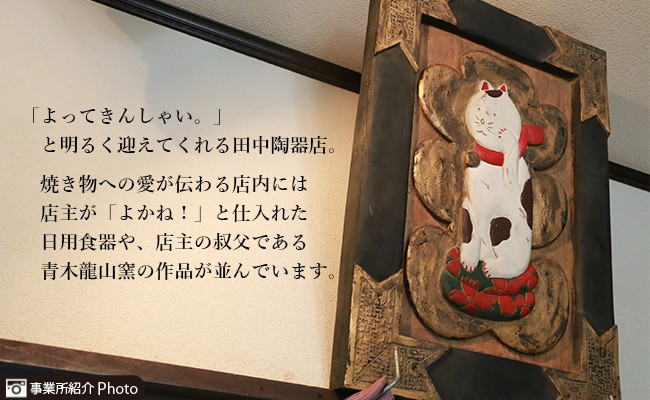 「よってきんしゃい。」
と明るく迎えてくれる田中陶器店。
焼き物への愛が伝わる店内には
店主が「よかね！」と仕入れた
日用食器や、店主の叔父である
青木龍山窯の作品が並んでいます。
事業所紹介 Photo